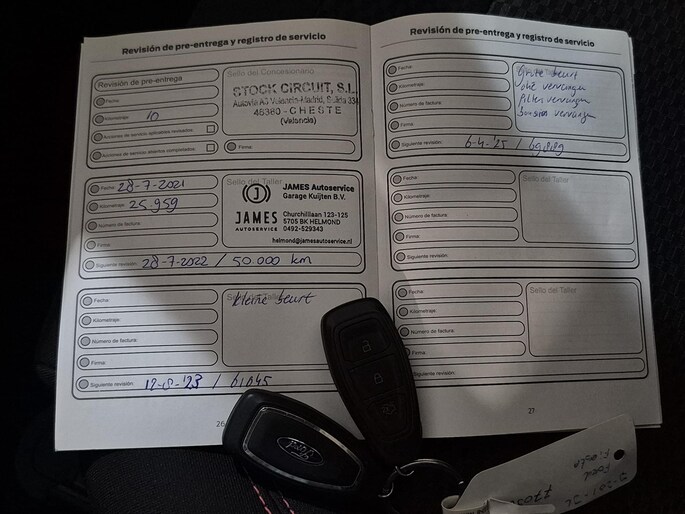 Revisión de pre-entrega y registro de servicio
Revisión de pre-entrega
Fecha:
Kilometraje: 10
Acciones de servicio aplicables revisadas:
Acciones de servicio abiertas completadas:
Sello del Concesionario
STOCK CIRCUIT, S.L.
Autovía A3 Valencia-Madrid, Salida 334
46380 - CHESTE
(Valencia)
Firma:
Fecha: 28-7-2021
Kilometraje: 25.959
Número de factura:
Firma:
Sello del Taller
JAMES
AUTOSERVICE
JAMES Autoservice
Garage Kuijten B.V.
Churchilllaan 123-125
5705 BK HELMOND
0492-529343
helmond@jamesautoservice.nl
Siguiente revisión: 28-7-2022 / 50.000 km
Fecha:
Kilometraje:
Número de factura:
Firma:
Sello del Taller
kleine beurt
Siguiente revisión: 12-8-'23 /
26
Revisión de pre-entrega y registro de servicio
Fecha:
Kilometraje:
Número de factura:
Firma:
Grote beurt
Olie vervangen
Filter vervangen
vervangen
Siguiente revisión: 6-4-'25 /
Fecha:
Kilometraje:
Número de factura:
Firma:
Sello del Taller
Siguiente revisión:
Fecha:
Kilometraje:
Número de factura:
Firma:
Sello del Taller
Siguiente revisión:
27
Ford
Ford